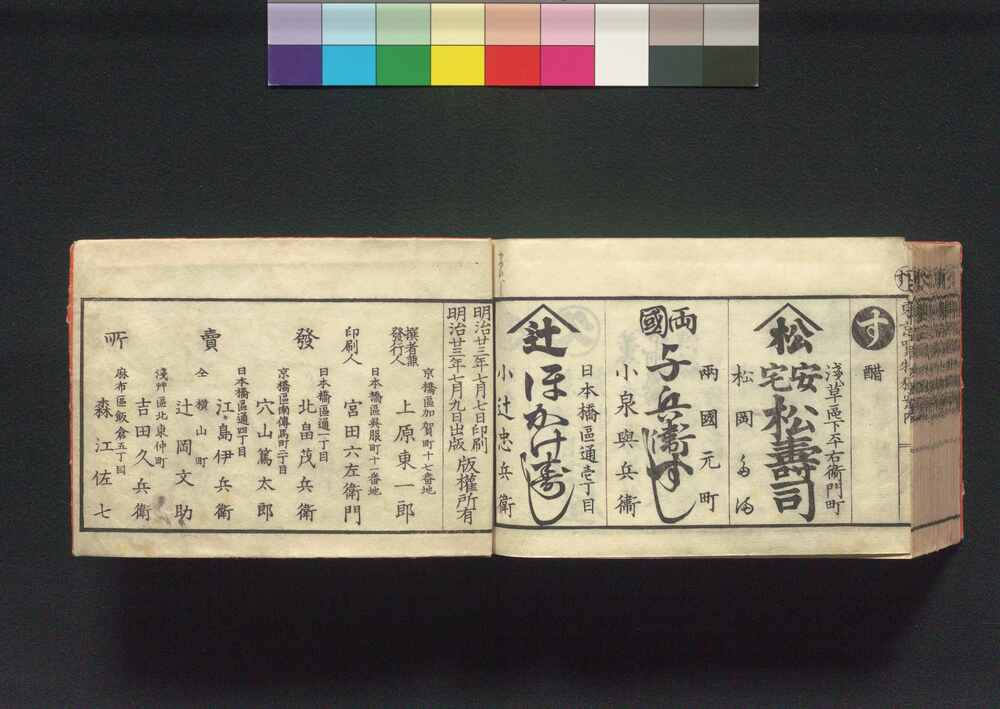 す
醋
淺草區下平右衞門町
松
安宅松壽司
松岡
兩國元町
両國
与兵衛すし
小泉與兵衞
日本橋區通壱丁目
辻
ほかけ壽し
小辻忠兵衞
明治廿三年七月七日印刷
明治廿三年七月九日出版
版權所有
京橋區加賀町十七番地
撰者兼
發行人
上原東一郎
日本橋區呉服町十一番地
印刷人
宮田六左衛門
發賣所
日本橋區通一丁目
北畠茂兵衛
京橋區南傳馬町二丁目
穴山篤太郎
日本橋區通四丁目
江島伊兵衛
仝 横山町
辻岡文助
淺艸區北東仲町
吉田久兵衛
麻布區飯倉五丁目
森江佐七